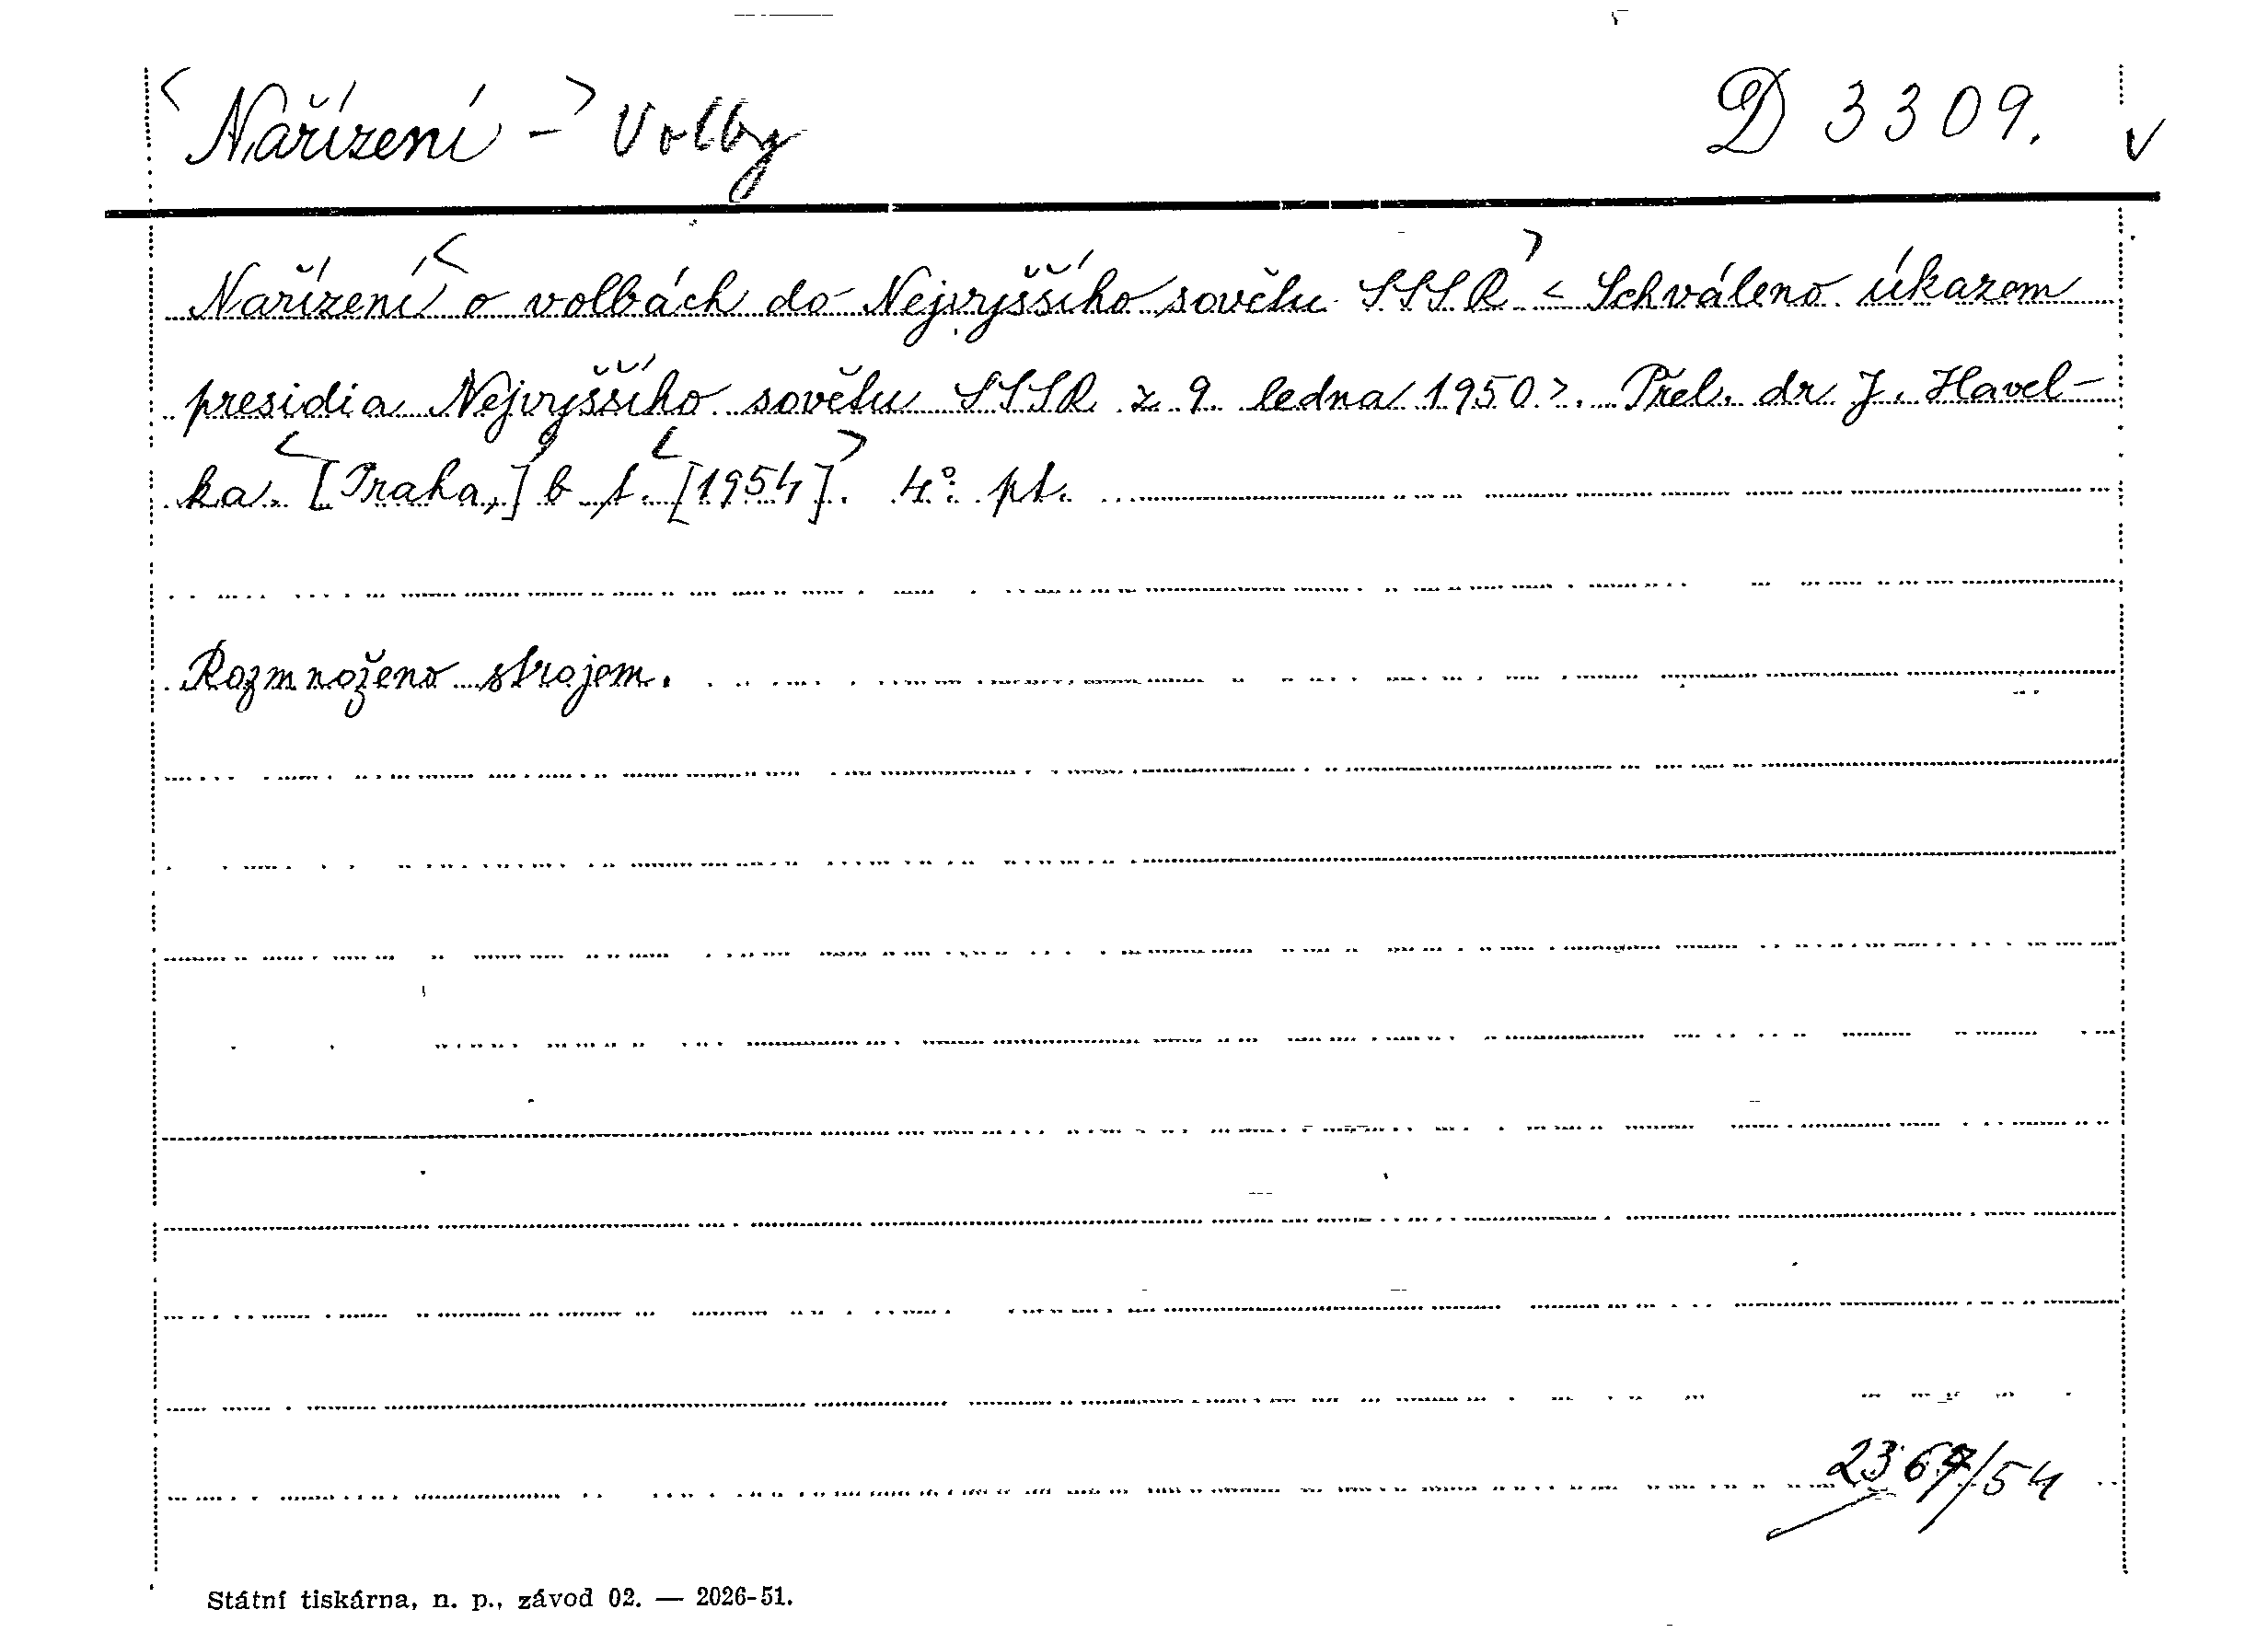 <Nařízení -> Volby D 3309. v
Nařízení <o volbách do Nejvyššího sovětu SSSR> < Schváleno úkazem
presidia Nejvyššího sovětu SSSR z 9. ledna 1950>. Přel. dr J. Havel-
ka. <[Praha,] b. t. <[1954]>. 4°. pt.
Rozmnoženo strojem.
2367/54
Státní tiskárna, n. p., závod 02. — 2026-51.